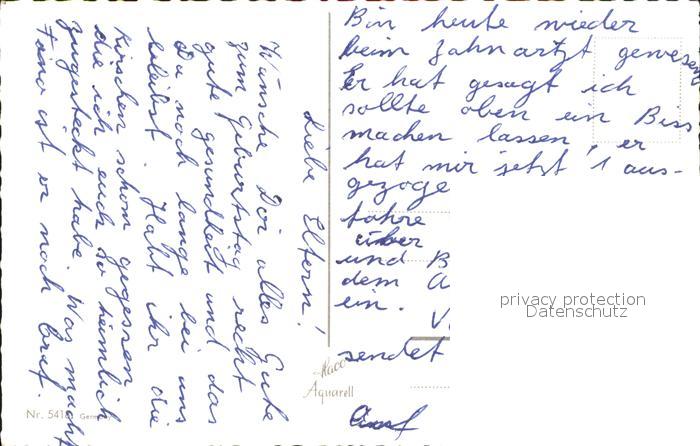 Liebe Eltern!
Wünsche Dir alles Gute
zum Geburtstag recht
gute gesundheit und das
Du noch lange bei uns
bleibst. Habt ihr die
Kirschen schon gegessen
die ich euch so heimlich
zugesteckt habe. Was macht
Tano ist er noch braf.
Bin heute wieder
beim Zahnartzt gewesen
Er hat gesagt ich
sollte oben ein Biss
machen lassen, er
hat mir jetzt 1 aus-
gezoge
fahre
über
und B
dem
ein.
V
sendet
Haco
Aquarell
Nr. 541
privacy protection
Datenschutz